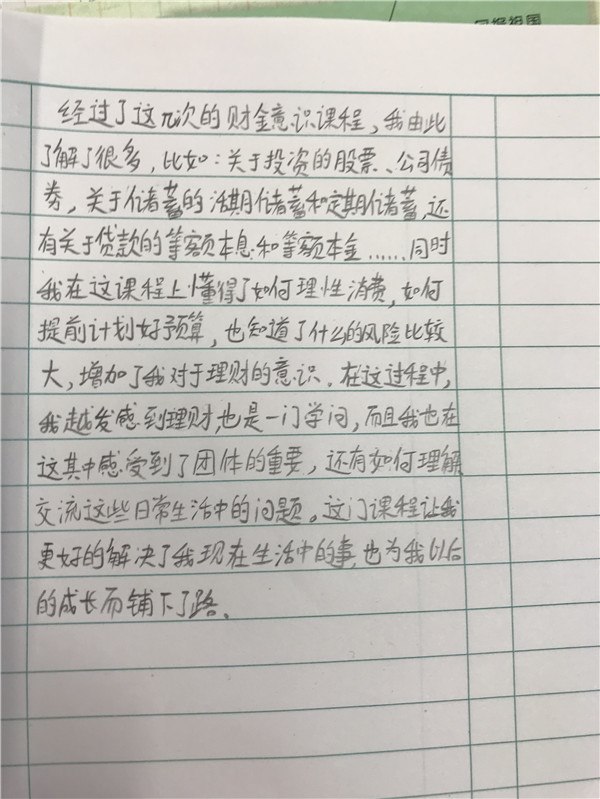 回报祖国
经过了这几次的财金意识课程,我由此
了解了很多,比如:关于投资的股票、公司债
券,关于储蓄的活期储蓄和定期储蓄,还
有关于贷款的等额本息和等额本金……同时
我在这课程上懂得了如何理性消费,如何
提前计划好预算,也知道了什么的风险比较
大,增加了我对于理财的意识.在这过程中,
我越发感到理财,也是一门学问,而且我也在
这其中感受到了团体的重要,还有如何理解
交流这些日常生活中的问题。这门课程让我
更好的解决了我现在生活中的事,也为我以后
的成长而铺下了路、